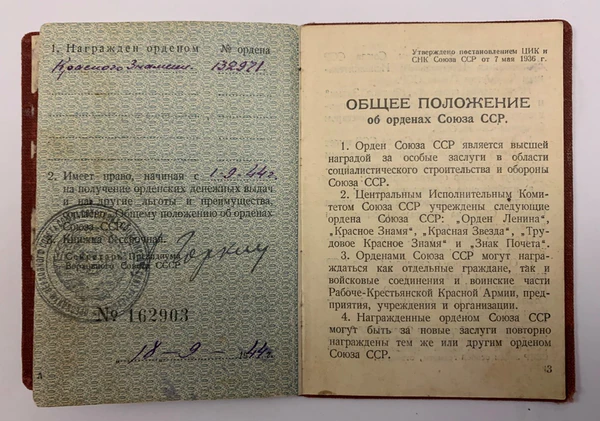 1. Награжден орденом № ордена
Красного Знамени. 132971.
2. Имеет право, начиная с 1-9-44 г.
на получение орденских денежных выдач
и на другие льготы и преимущества,
Общему положению об орденах
Союза ССР.
3. Книжка бессрочная.
Секретарь Президиума
Верховного Совета СССР
Горкин
№ 162903
18-9-44 г.
Утверждено постановлением ЦИК и
СНК Союза ССР от 7 мая 1936 г.
ОБЩЕЕ ПОЛОЖЕНИЕ
об орденах Союза ССР.
1. Орден Союза ССР является высшей
наградой за особые заслуги в области
социалистического строительства и обороны
Союза ССР.
2. Центральным Исполнительным Коми-
тетом Союза ССР учреждены следующие
ордена Союза ССР: „Орден Ленина“,
„Красное Знамя“, „Красная Звезда“, „Тру-
довое Красное Знамя“ и „Знак Почета“.
3. Орденами Союза ССР могут на-
граждаться как отдельные граждане, так и
войсковые соединения и воинские части
Рабоче-Крестьянской Красной Армии, пред-
приятия, учреждения и организации.
4. Награжденные орденом Союза ССР
могут быть за новые заслуги повторно
награждены тем же или другим орденом
Союза ССР.
3